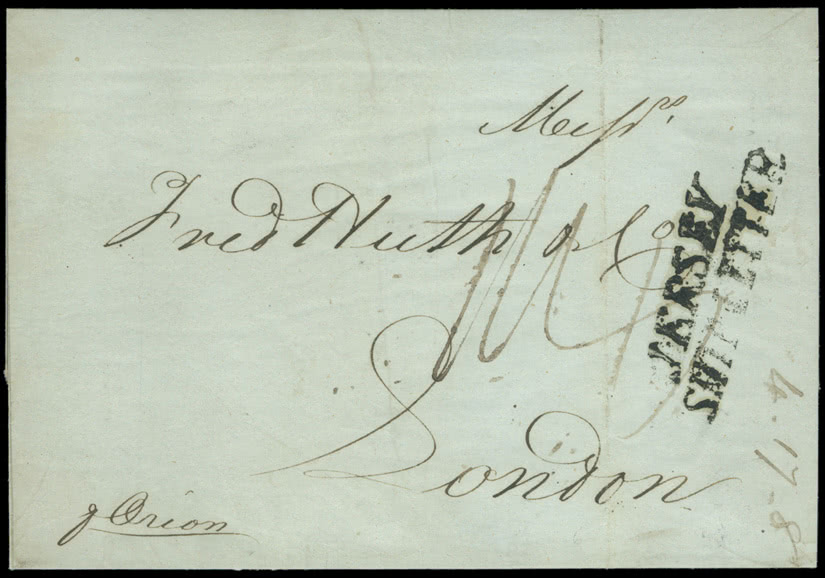 Messrs
Fred Huth & Co
London
p Orion
JERSEY
SHIP LETTER